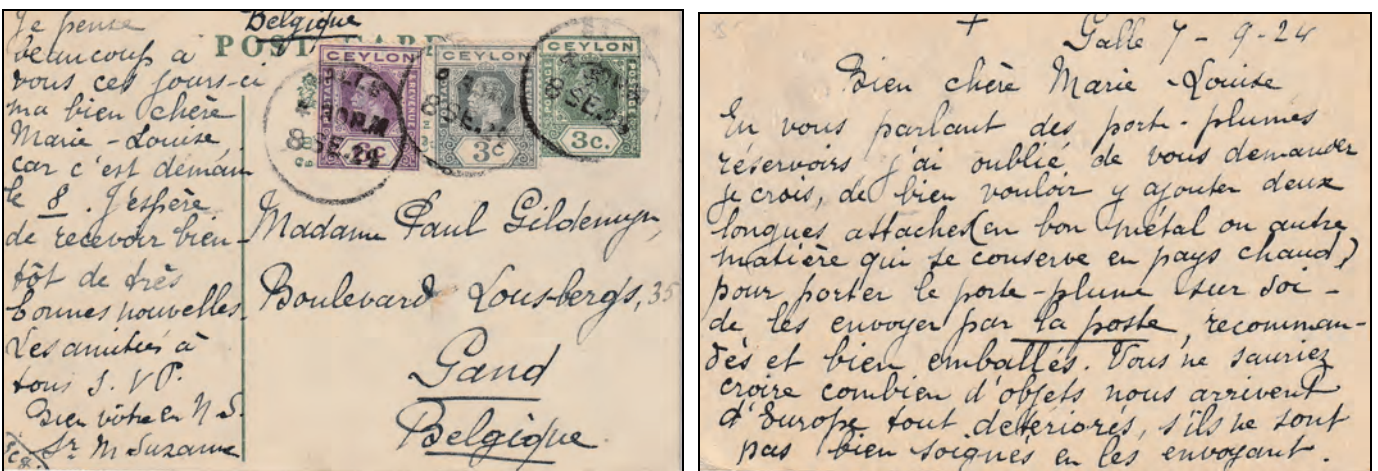 Je pense
beaucoup à
vous ces jours-ci
ma bien chère
Marie-Louise,
car c'est demain
le 8. J'espère
de recevoir bien-
tôt de très
bonnes nouvelles.
Les amitiés à
tous S. V P.
Bien vôtre en N S.
Sr M Suzanne
Belgique
POST CARD
CEYLON
POSTAGE
REVENUE
6c
CEYLON
POSTAGE
3c
CEYLON
POSTAGE
3c.
8 SE. 24
8 SE. 24
8 SE. 24
Madame Paul Gildemyn,
Boulevard Lousbergs, 35
Gand
Belgique.
+
Galle 7-9-24
Bien chère Marie-Louise
En vous parlant des porte-plumes
réservoirs j'ai oublié de vous demander
je crois, de bien vouloir y ajouter deux
longues attaches (en bon métal ou autre
matière qui se conserve en pays chaud)
pour porter le porte-plume sur soi-
de les envoyer par la poste, recomman-
dés et bien emballés. Vous ne sauriez
croire combien d'objets nous arrivent
d'Europe tout détériorés, s'ils ne sont
pas bien soignés en les envoyant.